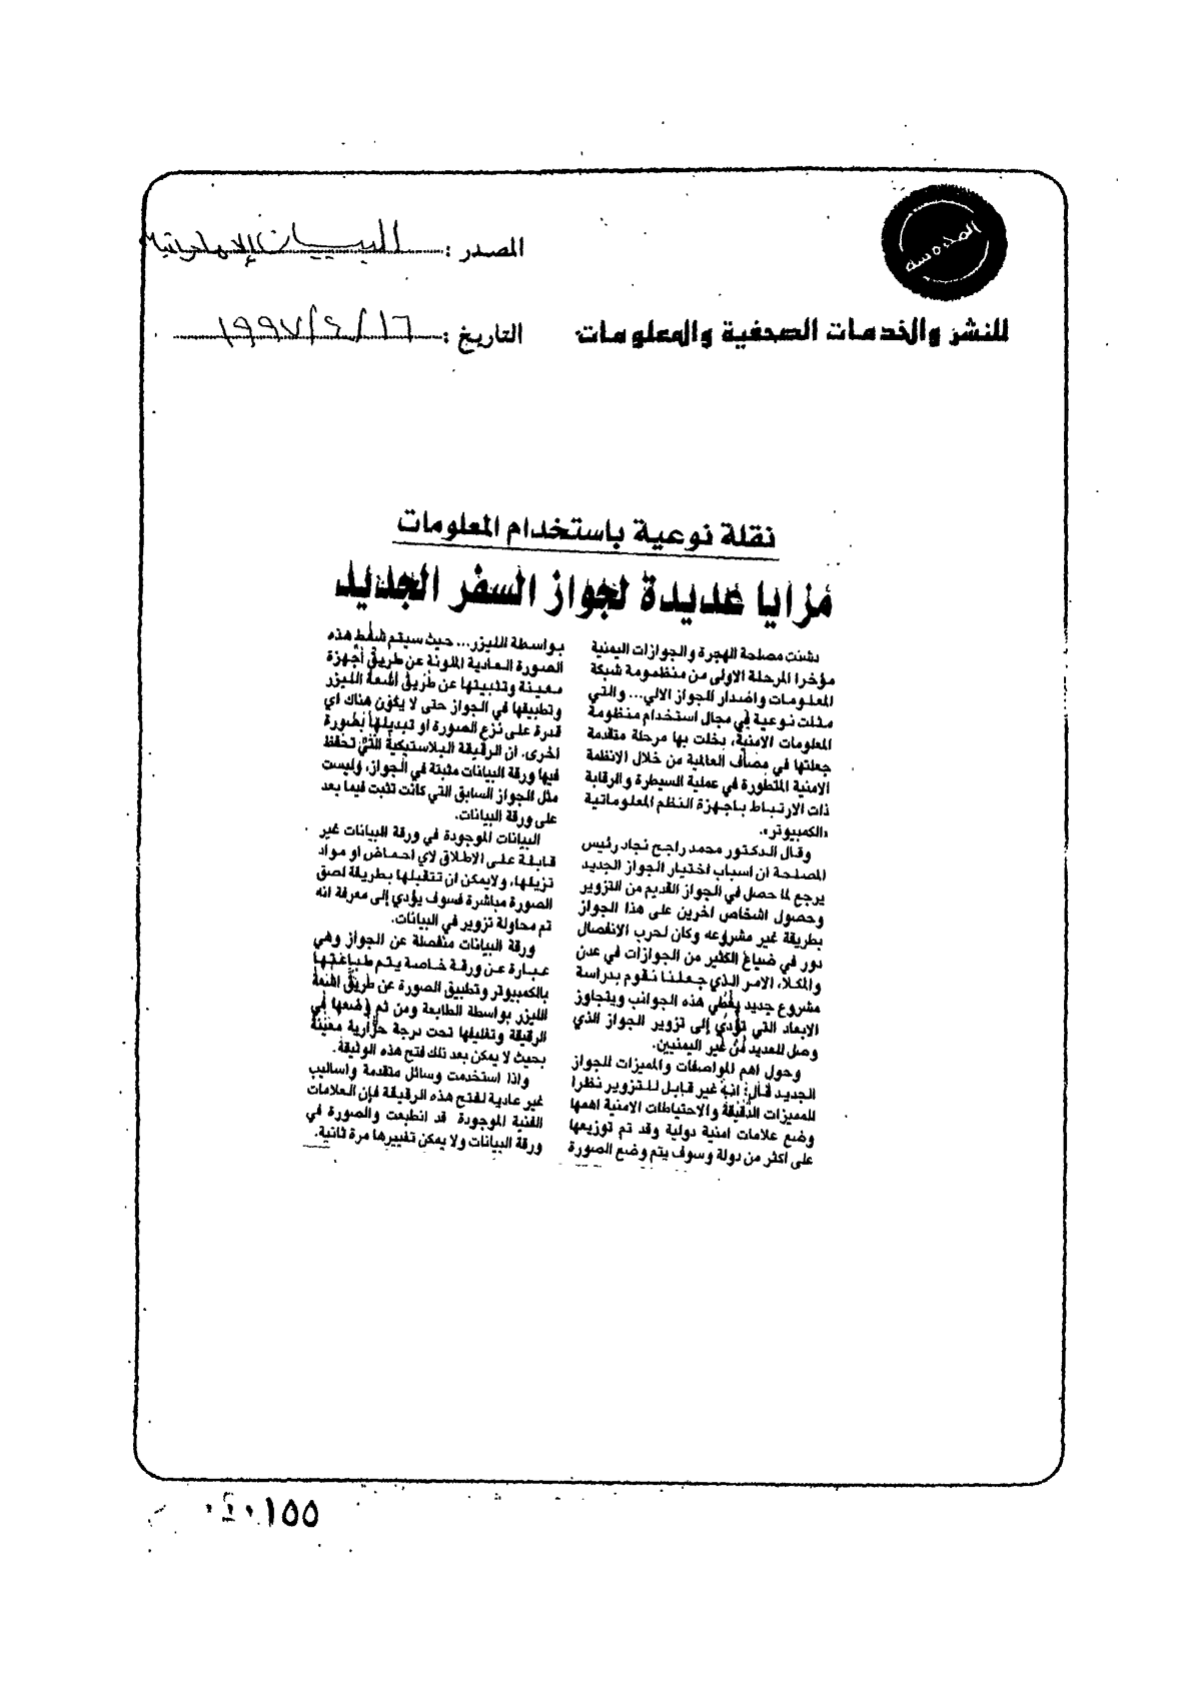 المصدر : البيان الإماراتية
للنشر والخدمات الصحفية والمعلومات
التاريخ : ١٦/٤/١٩٩٧
نقلة نوعية باستخدام المعلومات
مزايا عديدة لجواز السفر الجديد
دشنت مصلحة الهجرة والجوازات اليمنية
مؤخرا المرحلة الاولى من منظومة شبكة
المعلومات واصدار الجواز الالي... والتي
مثلت نوعية في مجال استخدام منظومة
المعلومات الامنية، دخلت بها مرحلة متقدمة
جعلتها في مصاف العالمية من خلال الانظمة
الامنية المتطورة في عملية السيطرة والرقابة
ذات الارتباط باجهزة النظم المعلوماتية
«الكمبيوتر».
وقال الدكتور محمد راجح نجاد رئيس
المصلحة ان اسباب اختيار الجواز الجديد
يرجع لما حصل في الجواز القديم من التزوير
وحصول اشخاص اخرين على هذا الجواز
بطريقة غير مشروعه وكان لحرب الانفصال
دور في ضياع الكثير من الجوازات في عدن
والمكلا، الامر الذي جعلنا نقوم بدراسة
مشروع جديد يغطي هذه الجوانب ويتجاوز
الابعاد التي تؤدي إلى تزوير الجواز الذي
وصل للعديد من غير اليمنيين.
وحول اهم المواصفات والمميزات للجواز
الجديد قال: انه غير قابل للتزوير نظرا
للمميزات الدقيقة والاحتياطات الامنية اهمها
وضع علامات امنية دولية وقد تم توزيعها
على اكثر من دولة وسوف يتم وضع الصورة
بواسطة الليزر... حيث سيتم شفط هذه
الصورة العادية الملونة عن طريق أجهزة
معينة وتثبيتها عن طريق اشعة الليزر
وتطبيقها في الجواز حتى لا يكون هناك اي
قدرة على نزع الصورة او تبديلها بصورة
اخرى. ان الرقيقة البلاستيكية التي تحفظ
فيها ورقة البيانات مثبتة في الجواز، وليست
مثل الجواز السابق التي كانت تثبت فيما بعد
على ورقة البيانات.
البيانات الموجودة في ورقة البيانات غير
قابلة على الاطلاق لاي احماض او مواد
تزيلها، ولايمكن ان تتقبلها بطريقة لصق
الصورة مباشرة فسوف يؤدي إلى معرفة انه
تم محاولة تزوير في البيانات.
ورقة البيانات منفصلة عن الجواز وهي
عبارة عن ورقة خاصة يتم طباعتها
بالكمبيوتر وتطبيق الصورة عن طريق اشعة
الليزر بواسطة الطابعة ومن ثم وضعها في
الرقيقة وتغليفها تحت درجة حرارية معينة
بحيث لا يمكن بعد ذلك فتح هذه الوثيقة.
واذا استخدمت وسائل متقدمة واساليب
غير عادية لفتح هذه الرقيقة فإن العلامات
الفنية الموجودة قد انطبعت والصورة في
ورقة البيانات ولا يمكن تغييرها مرة ثانية.